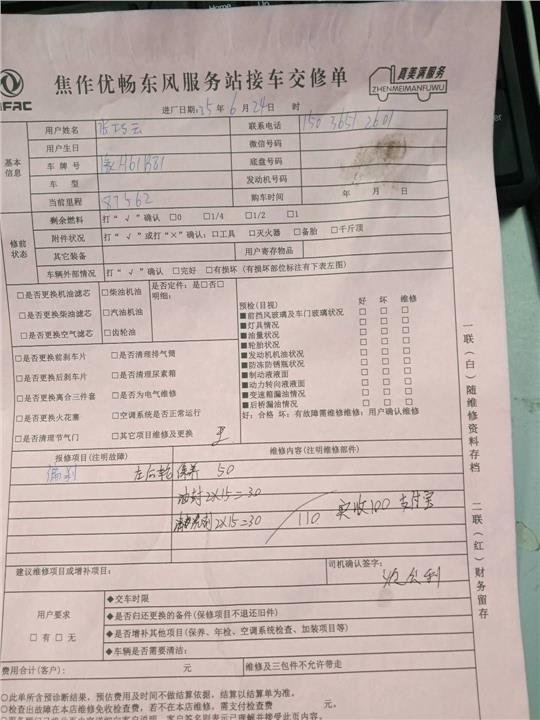 焦作优畅东风服务站接车交修单
真美满服务
ZHENMEIMANFUWU
进厂日期:25年6月24日 时
基本信息
用户姓名
联系电话 150 3651 2601
用户生日 微信号码
车牌号 豫H61B81 底盘号码
车型 发动机号码
当前里程 87562 购车时间 年 月 日
修前状态
剩余燃料 打“√”确认 □0 □1/4 □1/2 □1
附件状况 打“√”或打“×”确认:□工具 □灭火器 □备胎 □千斤顶
其它装备 用户寄存物品
车辆外部情况 打“√”确认 □完好 □有损坏(有损坏部位标注有下表左图)
□是否更换机油滤芯 □柴油机油 是否定件:是□否□
明细:
□是否更换柴油滤芯 □汽油机油
□是否更换空气滤芯 □齿轮油
□是否更换前刹车片 □是否清理排气筒
□是否更换后刹车片 □是否清理尿素箱
□是否更换离合三件套 □是否为电气维修
□是否更换火花塞 □空调系统是否正常运行
□是否清理节气门 □其它项目维修及更换
预检(目视) 好 坏 维修
■前挡风玻璃及车门玻璃状况 □ □ □
■灯具情况 □ □ □
■油量状况 □ □ □
■轮胎状况 □ □ □
■发动机机油状况 □ □ □
■防冻防锈瓶状况 □ □ □
■制动液液面 □ □ □
■动力转向液液面 □ □ □
■变速箱漏油情况 □ □ □
■后桥漏油情况 □ □ □
好:合格 坏:有故障需维修维修:用户确认维修
报修项目(注明故障) 维修内容(注明维修部件)
偏刹 左后轮保养 50
油封2X15=30
2X15=30 110 实收100 支付宝
建议维修项目或增补项目: 司机确认签字:
用户要求
□有□无
◆交车时限
◆是否归还更换的备件(保修项目不退还旧件)
◆是否增补其他项目(保养、年检、空调系统检查、加装项目等)
◆车辆是否需要清洁:
费用合计(客户): 元 维修及三包件不允许带走
○此单所含预诊断结果,预估费用及时间不做结算依据,结算以结算单为准。
○检查出故障在本店维修免收检查费,若不在本店维修,需支付检查费 元。
一联(白)随维修资料存档
二联(红)财务留存